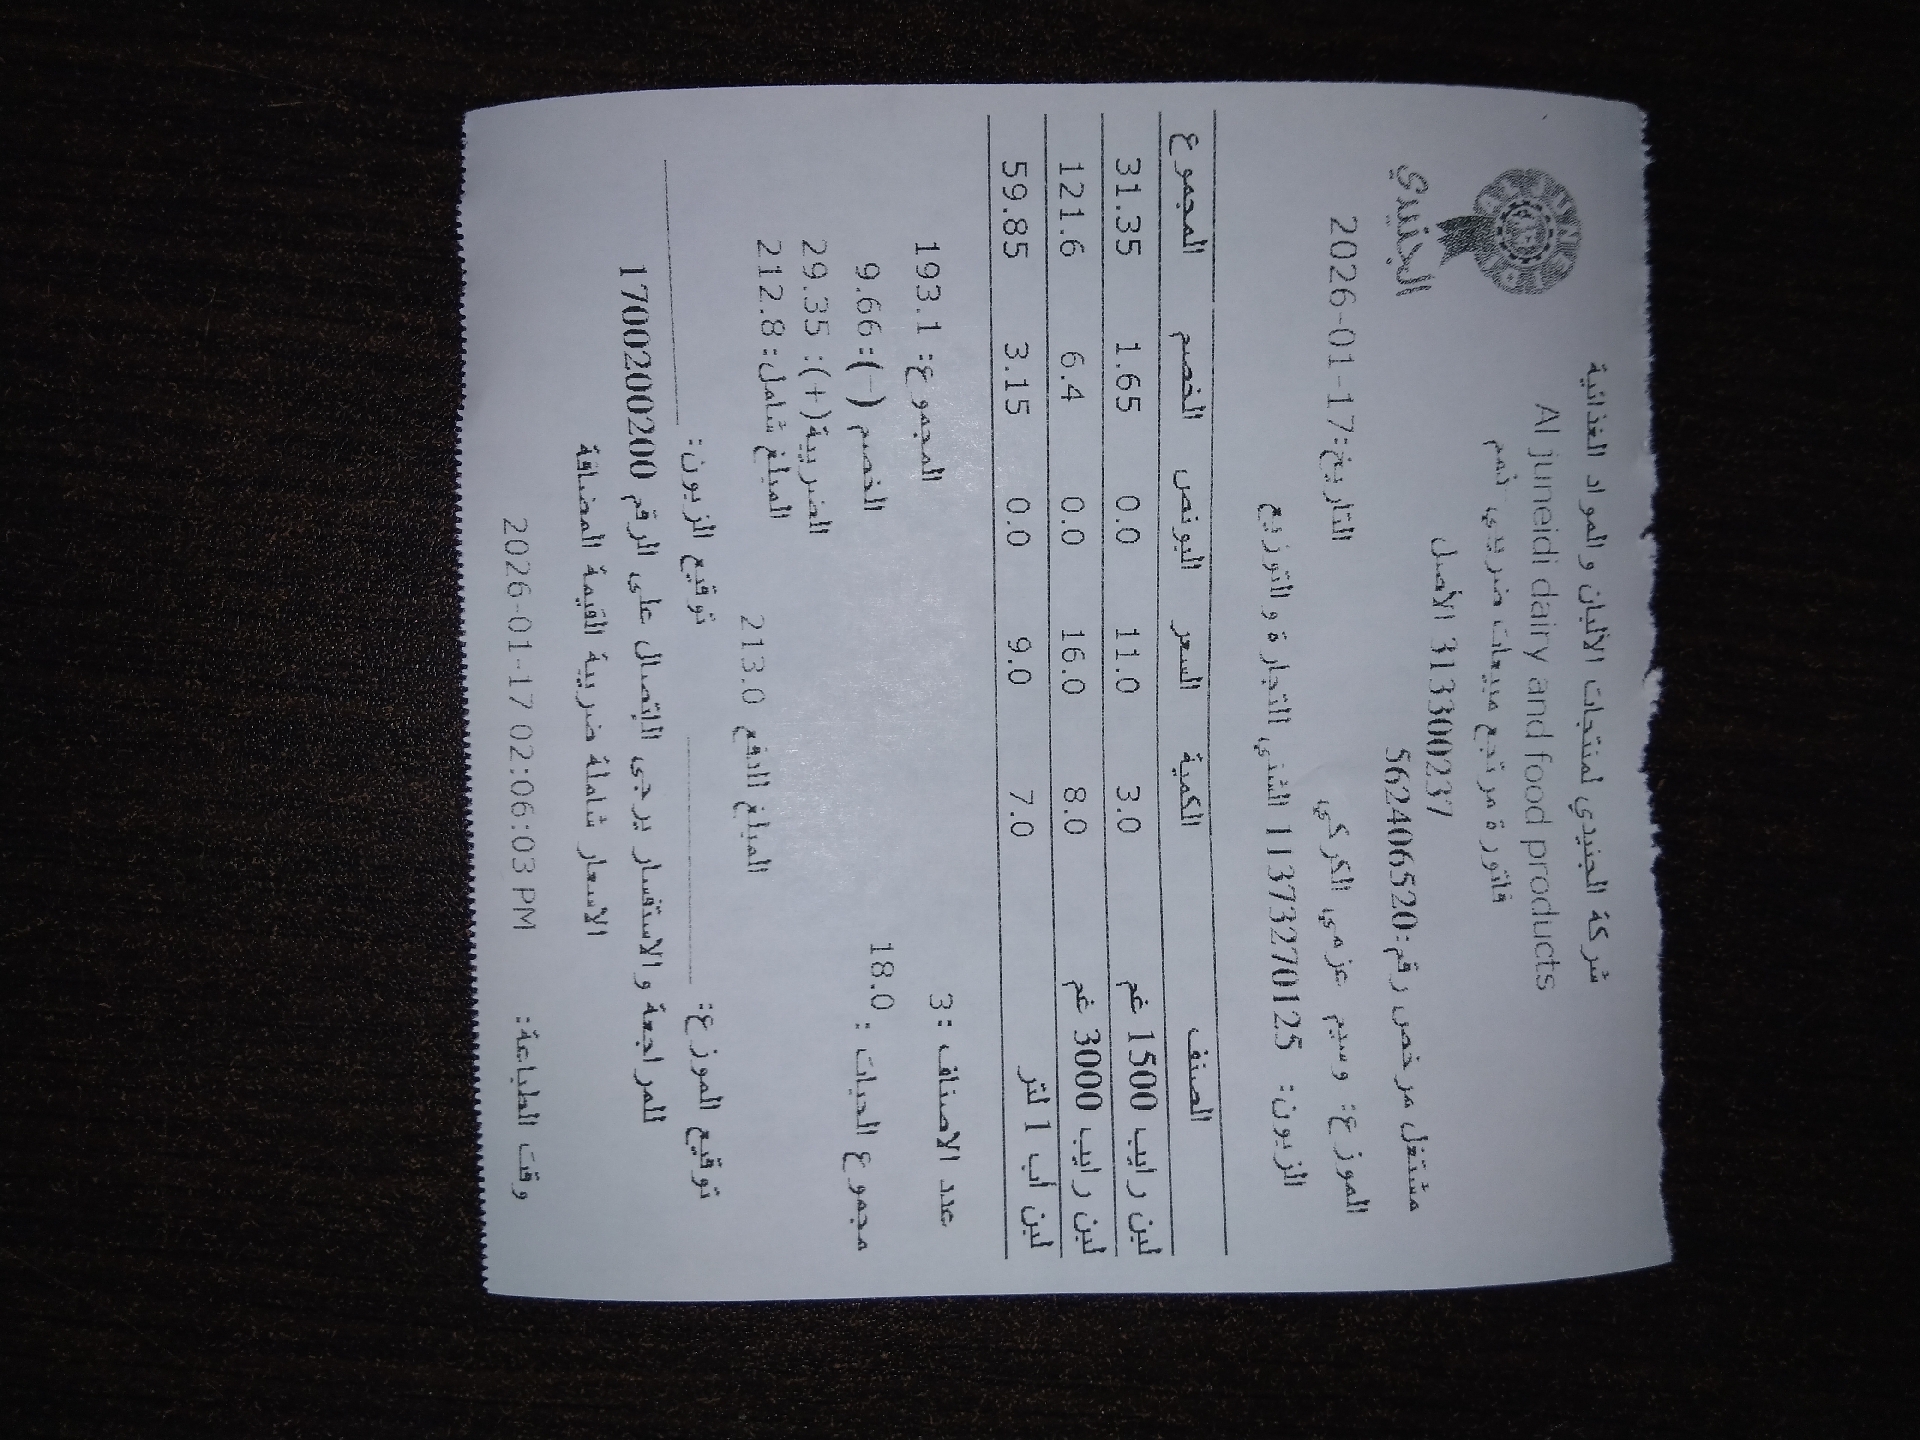 شركة الجنيدي لمنتجات الألبان والمواد الغذائية
Al juneidi dairy and food products
الجنيدي
فاتورة مرتجع مبيعات ضريبي نمم
313300237 الأصل
مشتغل مرخص رقم:562406520
الموزع: وسيم عزمي الكركي التاريخ:2026-01-17
الزبون: 11373270125 الشني للتجارة و التوزيع
الصنف الكمية السعر البونص الخصم المجموع
لبن رايب 1500 غم 3.0 11.0 0.0 1.65 31.35
لبن رايب 3000 غم 8.0 16.0 0.0 6.4 121.6
لبن أب 1 لتر 7.0 9.0 0.0 3.15 59.85
عدد الاصناف :3 المجموع: 193.1
مجموع الحبات : 18.0 الخصم (-):9.66
الضريبة(+): 29.35
المبلغ شامل: 212.8
المبلغ للدفع 213.0
توقيع الموزع: توقيع الزبون:
للمراجعة و الاستفسار يرجى الاتصال على الرقم 1700200200
الاسعار شاملة ضريبة القيمة المضافة
وقت الطباعة: 2026-01-17 02:06:03 PM